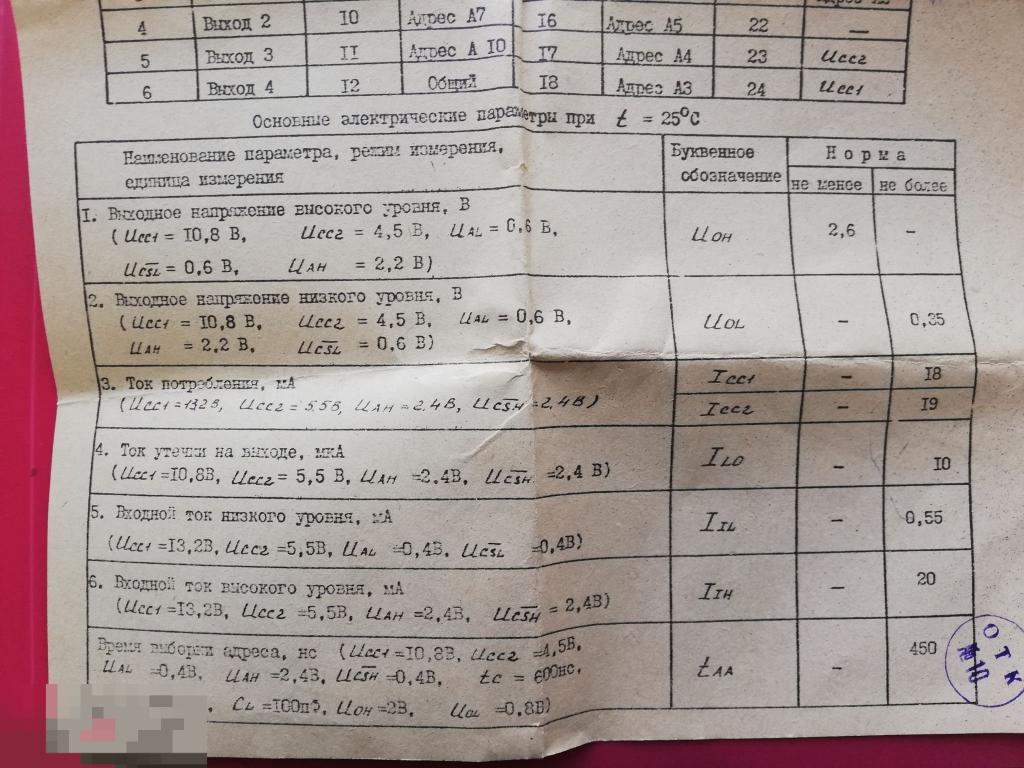 4 Выход 2 10 Адрес А7 16 Адрес А5 22 —
5 Выход 3 11 Адрес А 10 17 Адрес А4 23 Ucc2
6 Выход 4 12 Общий 18 Адрес А3 24 Ucc1
Основные электрические параметры при t = 25°С
Наименование параметра, режим измерения, единица измерения
Буквенное обозначение
Норма
не менее не более
1. Выходное напряжение высокого уровня, В
(Ucc1 = 10,8 В, Ucc2 = 4,5 В, UAL = 0,6 В,
UC̅S̅L = 0,6 В, UAH = 2,2 В)
UOH 2,6 –
2. Выходное напряжение низкого уровня, В
(Ucc1 = 10,8 В, Ucc2 = 4,5 В, UAL = 0,6 В,
UAH = 2,2 В, UC̅S̅L = 0,6 В)
UOL – 0,35
3. Ток потребления, мА
(Ucc1=132В, Ucc2=5,5В, UAH=2,4В, UC̅S̅H=2,4В)
Icc1 – 18
Icc2 – 19
4. Ток утечки на выходе, мкА
(Ucc1=10,8В, Ucc2= 5,5 В, UAH =2.4В, UC̅S̅H =2,4 В)
ILO – 10
5. Входной ток низкого уровня, мА
(Ucc1 =13,2В, Ucc2=5,5В, UAL =0,4В, UC̅S̅L =0,4В)
IIL – 0,55
6. Входной ток высокого уровня, мА
(Ucc1=13,2В, Ucc2 =5,5В, UAH =2,4В, UC̅S̅H = 2,4В)
IIH – 20
Время выборки адреса, нс (Ucc1=10,8В, Ucc2 =4,5В,
UAL =0,4В, UAH =2,4В, UC̅S̅H =0,4В, tc = 600нс,
CL =100пФ, UOH =2В, UOL =0,8В)
tAA – 450
ОТК
№10